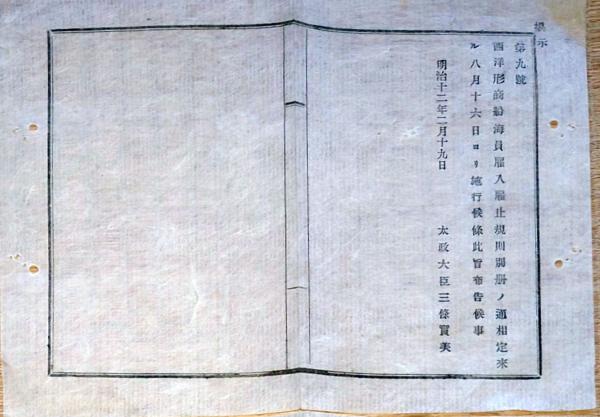 掲示
第九號
西洋形商船海員雇入雇止規則別册ノ通相定來
ル八月十六日ヨリ施行候條此旨布告候事
明治十二年二月十九日
太政大臣三條實美